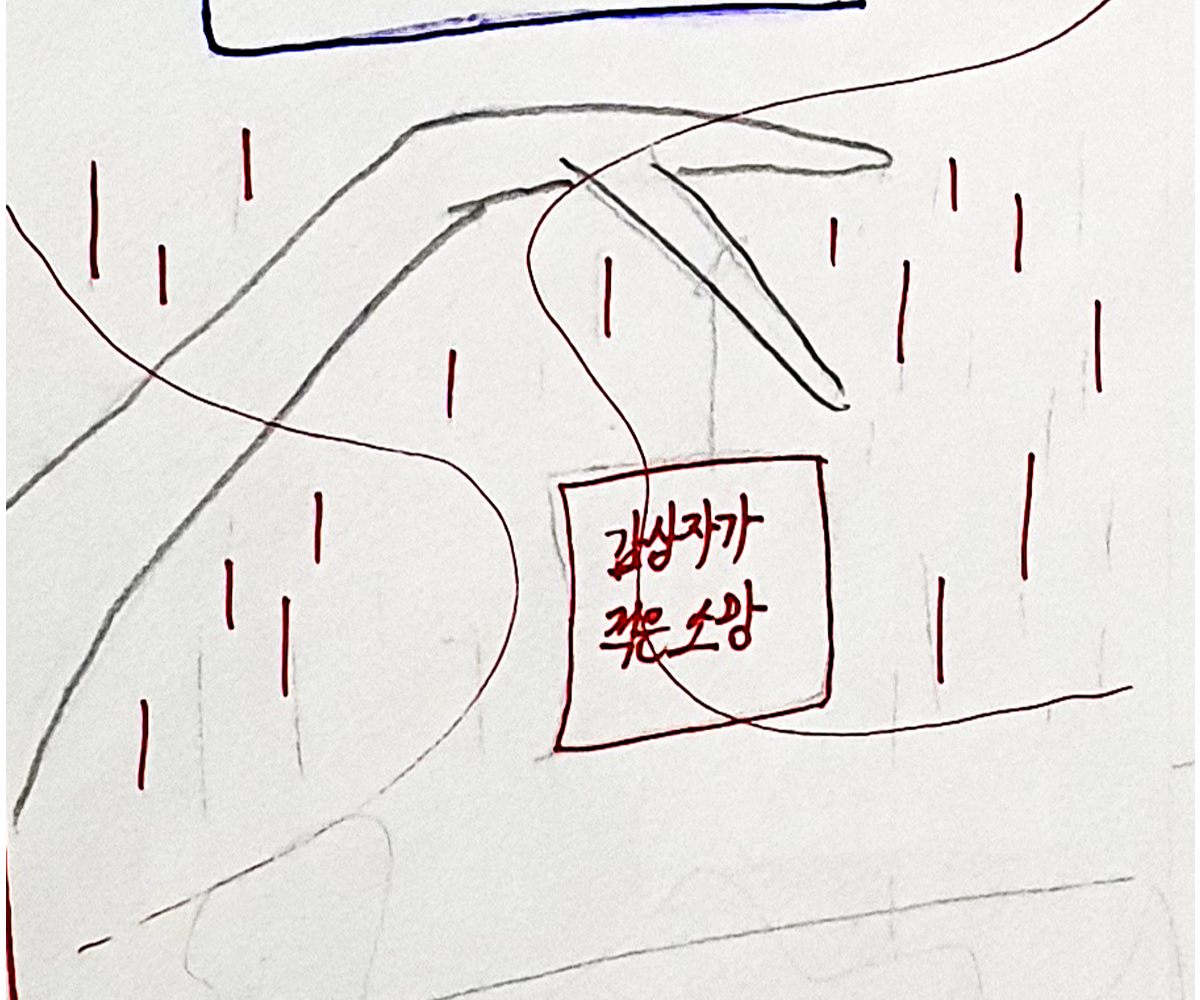 감상자가
적은 소망